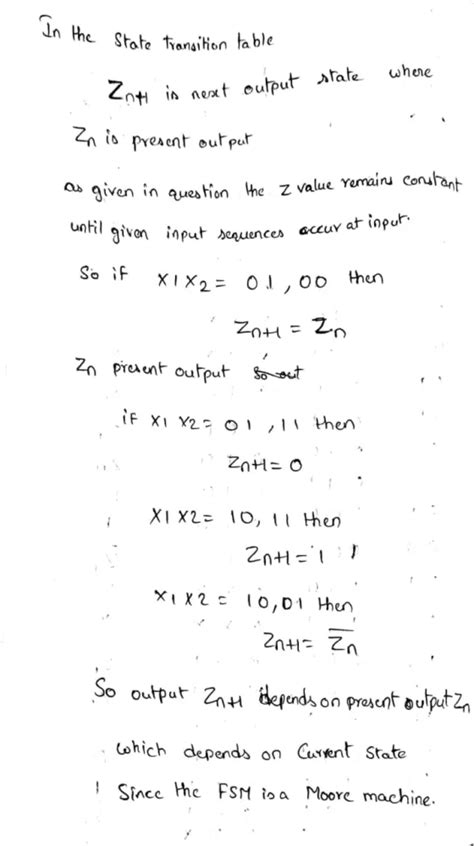 In the State Transition table
Zn+1 is next output state where
Zn is present output
as given in question the Z value remains constant
until given input sequences occur at input.
So if X1X2 = 01, 00 then
Zn+1 = Zn
Zn present output so out
if X1 X2 = 01, 11 then
Zn+1 = 0
X1X2 = 10, 11 then
Zn+1 = 1
X1X2 = 10,01 then
Zn+1 = Z̅n̅
So output Zn+1 depends on present output Zn
which depends on Current State
Since the FSM is a Moore machine.